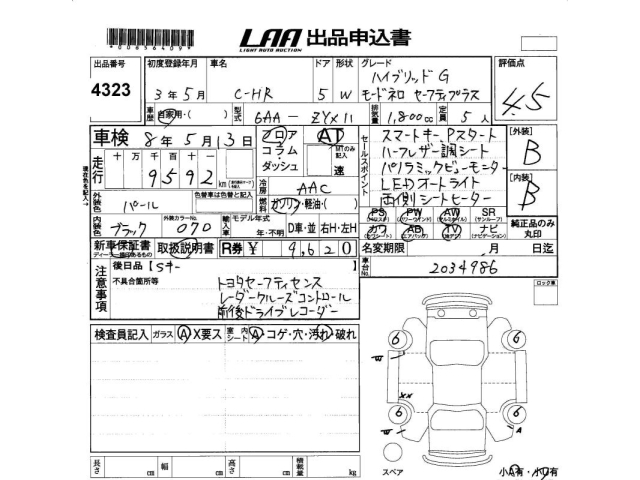 *0063640975*
LAA 出品申込書
LIGHT AUTO AUCTION
出品番号 4323
初度登録年月 3年5月
車名 C-HR
ドア 5
形状 W
グレード ハイブリッドG
モードネロ セーフティプラス
評価点 4.5
車歴 自家用・( )
型式 6AA-ZYX11
排気量 1,800cc
定員 5人
車検 8年5月13日
フロア
コラム・
ダッシュ
AT
MTのみ記入
速
セールスポイント
スマートキー、Pスタート
ハーフレザー調シート
パノラミックビューモニター
LEDオートライト
両側シートヒーター
[外装] B
[内装] B
走行 十万千百十 9592 km
冷房 AAC
外装色 パール
色替車は色替と記入
燃料 ガソリン・軽油・( )
PS PW AW SR
(パワーウインド) (サンルーフ)
カワ AB TV ナビ
(エアバッグ) (ナビゲーション)
純正品のみ丸印
内装色 ブラック
外装カラーNo. 070
輸入車 モデル年式 年・不明
D車・並 右H・左H
新車保証書
ディーラー印のあるもの
取扱説明書
R券 ¥9,620
名変期限 月 日迄
車台No. 2034986
現在色を記入→
注意事項
後日品【Sキー 】
不具合箇所等
トヨタセーフティセンス
レーダークルーズコントロール
前後ドライブレコーダー
ロック車
検査員記入 ガラス A X要ス 室内シート A・コゲ・穴・汚れ・破れ
6 6
W
XX
6 6
W A
スペア
小A有・小W有
長さ cm 幅 cm 高さ cm 積載量 kg